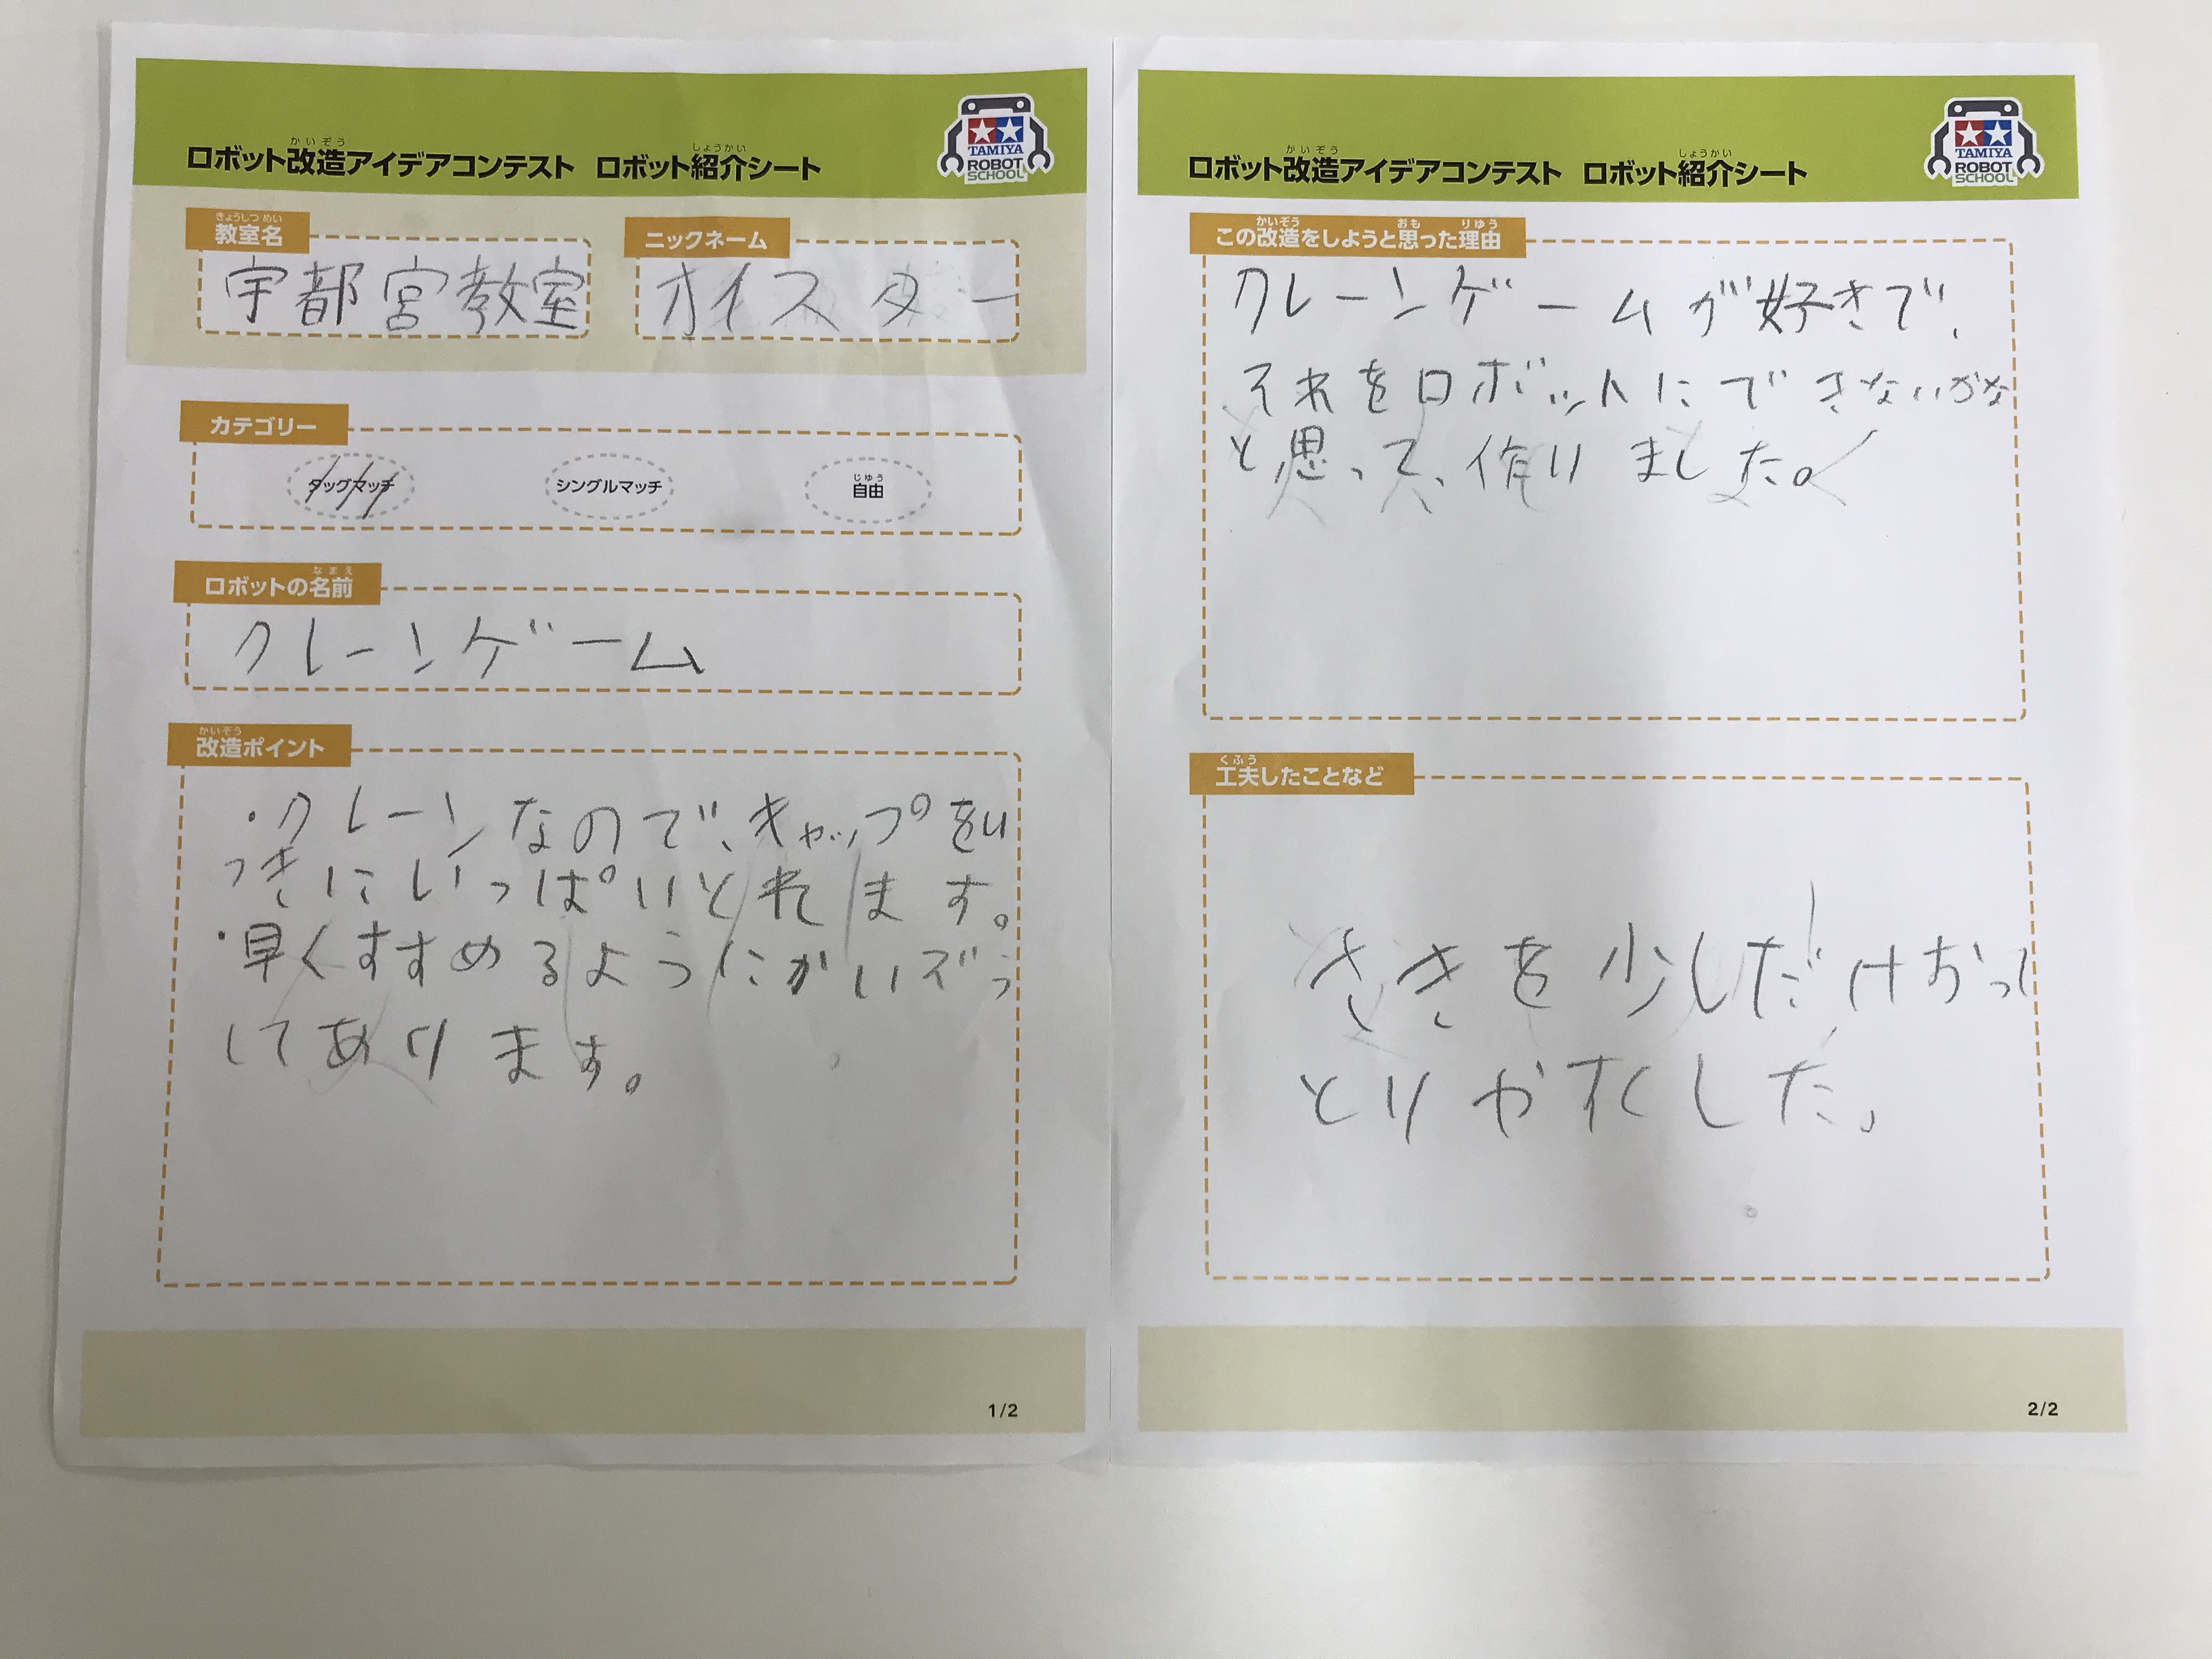 ロボット改造アイデアコンテスト ロボット紹介シート
かいぞう
しょうかい
TAMIYA
ROBOT
SCHOOL
きょうしつ めい
教室名
宇都宮教室
ニックネーム
オイスター
カテゴリー
タッグマッチ
シングルマッチ
じゆう
自由
なまえ
ロボットの名前
クレーンゲーム
かいぞう
改造ポイント
・クレーンなので、キャップをい
っきにいっぱいとれます。
・早くすすめるようにかいぞう
してあります。
1/2
ロボット改造アイデアコンテスト ロボット紹介シート
かいぞう
しょうかい
TAMIYA
ROBOT
SCHOOL
かいぞう おも りゆう
この改造をしようと思った理由
クレーンゲームが好きで、
それをロボットにできないかな
と思って、作りました。
くふう
工夫したことなど
さきを少しだけおって
とりやすくした。
2/2